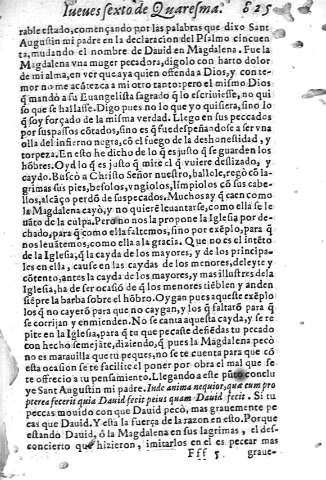 Iueues sexto de Quaresma. 825
rable estado, començando por las palabras que dixo Sant
Augustin mi padre en la declaracion del Psalmo cincuen
ta, mudando el nombre de Dauid en Magdalena. Fue la
Magdalena vna muger pecadora, digolo con harto dolor
de mi alma, en ver que aya quien offenda a Dios, y con te-
mor no me acótezca a mi otro tanto, pero el mismo Dios
q̃ mandò a su Euangelista sagrado q̃ lo escriuiesse, no qui
so que se hallasse. Digo pues no lo que yo quisiera, sino lo
q̃ soy forçado de la misma verdad. Llego en sus peccados
por sus passos cótados, sino es q̃ fue despeñandose a ser vna
olla del infierno negra, có el fuego de la deshonestidad, y
torpeza. En esto he dicho de lo q̃ es justo q̃ se guarden los
hóbres. Oyd lo q̃ es justo q̃ mire el q̃ vuiere deslizado, y
caydo. Buscò a Christo Señor nuestro, hallole, regò có la-
grimas sus pies, besolos, vngiolos, limpiolos có sus cabe-
llos, alcáço perdó de sus pecados. Muchos ay q̃ caen como
la Magdalena cayò, y no quieré leuantarse, como ella se le
uáto de la culpa. Pero no nos la propone la Iglesia por de-
chado, para q̃ como ella faltemos, sino por exéplo, para q̃
nos leuátemos, como ella a la gracia. Que no es el intéto
de la Iglesia, q̃ la cayda de los mayores, y de los principa-
les en ella, cause en las caydas de los menores, deleyte y
cótento, antes la cayda de los mayores, y mas illustres de la
Iglesia, ha de ser ocasió de q̃ los menores tiéblen y anden
siépre la barba sobre el hóbro. Oygan pues aqueste exéplo
los q̃ no cayeró para que no caygan, y los q̃ faltaró para q̃
se corrijan y enmienden. No se canta aquesta cayda, y se re
pite en la Iglesia, para q̃ tu que pecaste defiédas tu pecado
con hecho semejáte, diziendo, q̃ pues la Magdalena pecò
no es marauilla que tu peques, no se te cuenta para que có
esta ocasion se te facilite el poner por obra el mal que se
te offrecio a tu pensamiento. Llegando a este púto conclu
ye Sant Augustin mi padre. Inde anima nequior, quæ cum pro
pterea fecerit quia Dauid fecit peius quam Dauid fecit. Si tu
peccas mouido con que Dauid pecò, mas grauemente pe
cas que Dauid. Y esta la fuerça de la razon en esto. Porque
estando Dauid, ò la Magdalena en sus lagrimas, el des-
concierto que hizieron, imitarlos en el es pecar mas
Fff 5 graue-